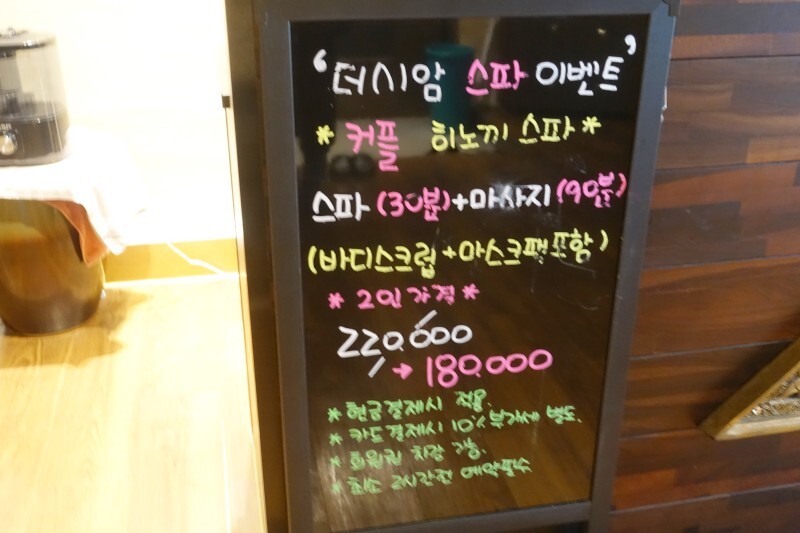 '더시암 스파 이벤트'
* 커플 히노끼 스파 *
스파 (30분)+마사지 (90분)
(바디스크럽 +마스크팩포함)
* 2인가격 *
220.000
→ 180.000
* 현금결제시 적용.
* 카드결제시 10% 부가세 별도.
* 회원권 차감 가능.
* 최소 2시간전 예약필수